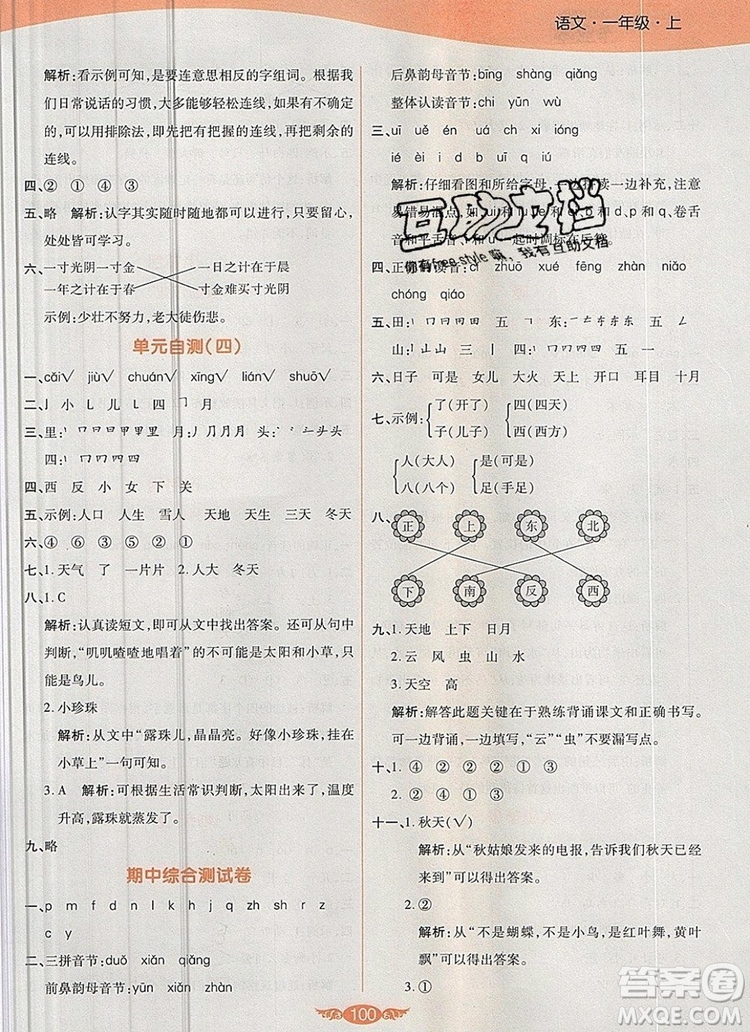 语文·一年级·上
解析:看示例可知,是要连意思相反的字组词。根据我
们日常说话的习惯,大多能够轻松连线,如果有不确定
的,可以用排除法,即先把有把握的连线,再把剩余的
连线。
四、② ① ④ ③
五、略 解析:认字其实随时随地都可以进行,只要留心,
处处皆可学习。
六、一寸光阴一寸金 一日之计在于晨
一年之计在于春 寸金难买寸光阴
示例:少壮不努力,老大徒伤悲。
单元自测(四)
一、cǎi√ jiù√ chuán√ xīng√ lián√ shuō√
三、里: 月: 头:
四:
四、西 反 小 女 下 关
五、示例:人口 人生 雪人 天地 天生 三天 冬天
六、④ ② ⑥ ③ ① ⑤
七、1.天气 了 一片片 2.人大 冬天
八、1. C
解析:认真读短文,即可从文中找出答案。还可从句中
判断,“叽叽喳喳地唱着”的不可能是太阳和小草,只可
能是鸟儿。
2.小珍珠
解析:从文中“露珠儿,晶晶亮。好像小珍珠,挂在
小草上”一句可知。
3. A 解析:可根据生活常识判断,太阳出来了,温度
升高,露珠就蒸发了。
九、略
期中综合测试卷
一、p m f d n l j q x zh sh r z
c y
二、三拼音节:duǒ xiǎn qiǎng
前鼻韵母音节:yūn xiǎn yún
后鼻韵母音节:bīng shàng qiǎng
整体认读音节:chi yūn wù
三、uī uě én uì ch xi ióng
ié èi i d b uī q iú
解析:仔细看图和所给字母,一边拼读一边补充,注意
四、正确读音:cì zhuō xué fēi chē nǎo
sōng
五、田: 五: 东:
山: 四 西 四 五 一
六、日子 可是 女儿 大火 天空 开口 耳目 十月
七、示例: 了(了开) 四(四天)
子(儿子) 西(西方)
人(大人) 是(可是)
八(八个) 足(手足)
八、正 上 东 北
下 南 反 西
九、1.天地 上下 日月
2.云 风 虫 山 水
3.天空 高
解析:解答此题关键在于熟练背诵课文和正确书写。
可一边背诵,一边填写。“云”“虫”不要漏写点。
十、1.③ ① ④ ② ⑤
2.② ① ③ ④
十一、1.秋天(√)
解析:从“秋姑娘发来的电报,告诉我们秋天已经到
来”可以得出答案。
2.②
解析:从“不是蝴蝶,不是小鸟,是红叶舞,黄叶
飘”可以得出答案。
3.①
互助文档
你有freestyle嘛,我有互助文档。
100
答案圈
MXQE.COM